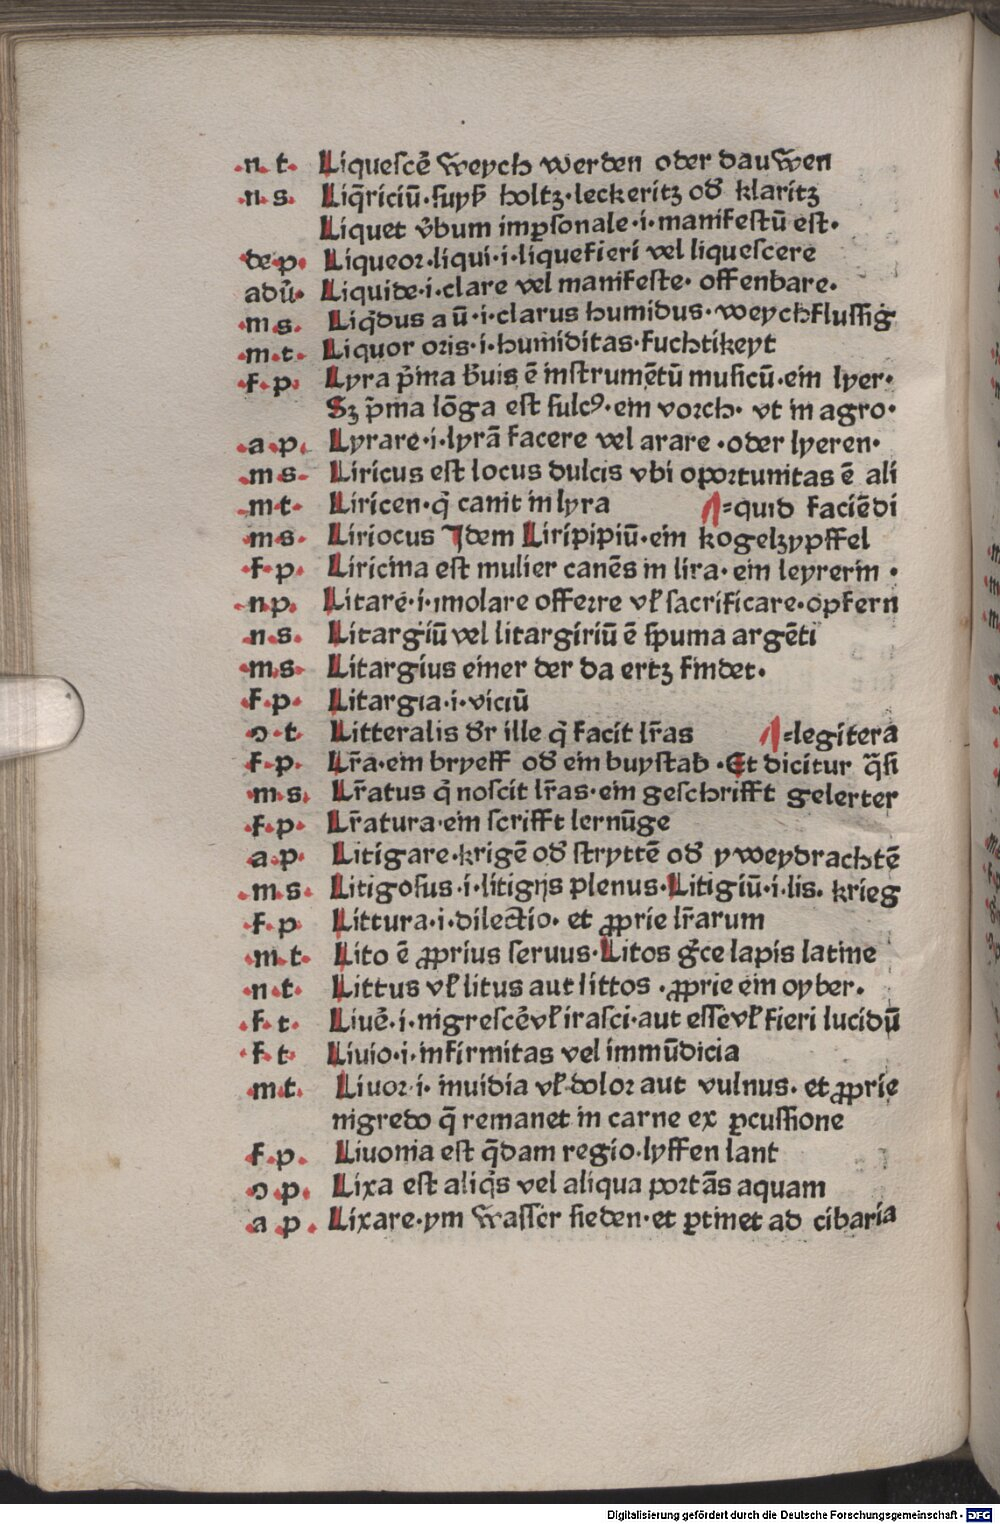 .n. t. Liquescē weych werden oder dauwen
.n. s. Liq̄riciū.suyß holtz.leckeritz od̛ klaritz
Liquet v̛bum imꝑsonale.i.manifestū est.
de p. Liqueor.liqui.i.liquefieri vel liquescere
adū. Liquide.i.clare vel manifeste. offenbare.
.m s. Liq̇dus a ū.i.clarus humidus.weychflussig
.m.t. Liquor oris.i.humiditas.fuchtikeyt
.f.p. Lyra p̄ima b̛uis ē instrumētū musicū.ein lyer.
Sꝫ p̄ma lōga est sulcꝰ.ein vorch. vt in agro.
.a p. Lyrare.i.lyrā facere vel arare .oder lyeren.
.m s. Liricus est locus dulcis vbi oportunitas ē ali
.m t. Liricen.q̇ canit in lyra ⸗quid faciēdi
m s. Liriocus Idem Liripipiū.ein kogelzypffel
.f.p. Liricina est mulier canēs in lira.ein leyrerin .
.n p. Litare.i.imolare offerre vꝉ sacrificare.opfern
.n s. Litargiū vel litargiriū ē spuma argēti
.m s. Litargius einer der da ertz findet.
.f.p. Litargia.i.viciū
.ɔ t. Litteralis d̛r ille q̇ facit lr̄as ⸗legitera
.f.p. Lr̄a.ein bryeff od̛ ein buystab .Et dicitur q̄si
.m s. Lr̄atus q̇ noscit lr̄as.ein geschrifft gelerter
.f.p. Lr̄atura.ein scrifft lernūge
.a p. Litigare.krigē od̛ stryttē od̛ yweydrachtē
.m s. Litigosus.i.litigijs plenus.Litigiū.i.lis. krieg
.f.p Littura.i.dilectio. et ꝓprie lr̄arum
.m t. Lito ē ꝓprius seruus.Litos g̛ce lapis latine
.n t. Littus vꝉ litus aut littos .ꝓprie ein oyber.
.f. t. Liuē.i.nigrescē vꝉ irasci.aut esse vꝉ fieri lucidū
.f t. Liuio.i.infirmitas vel immūdicia
m t. Liuor.i. inuidia vꝉ dolor aut vulnus. et ꝓprie
nigredo q̄ remanet in carne ex ꝑcussione
f.p. Liuonia est q̄dam regio.lyffen lant
.ɔ p. Lixa est aliq̇s vel aliqua portās aquam
.a p. Lixare.ym wasser sieden.et ꝑtinet ad cibaria
Digitalisierung gefördert durch die Deutsche Forschungsgemeinschaft - DFG